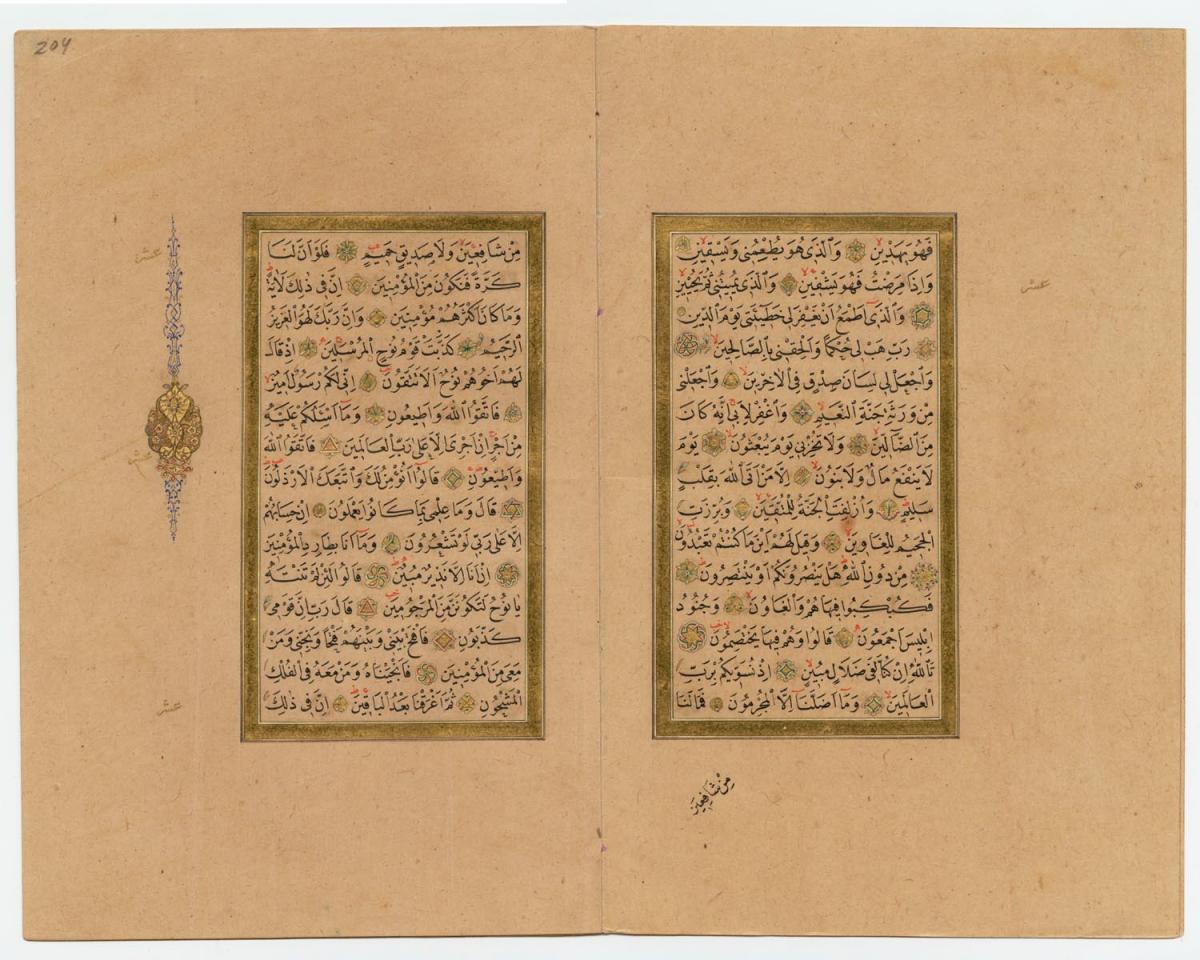 فَهُوَ يَهْدِينِ وَالَّذِى هُوَ يُطْعِمُنِى وَيَسْقِينِ
وَاِذَا مَرِضْتُ فَهُوَ يَشْفِينِ وَالَّذِى يُمِيتُنِى ثُمَّ يُحْيِينِ
وَالَّذِى اَطْمَعُ اَنْ يَغْفِرَ لِى خَطِيئَتِى يَوْمَ الدِّينِ
رَبِّ هَبْ لِى حُكْمًا وَاَلْحِقْنِى بِالصَّالِحِينَ
وَاجْعَلْ لِى لِسَانَ صِدْقٍ فِى الْاٰخِرِينَ وَاجْعَلْنِى
مِنْ وَرَثَةِ جَنَّةِ النَّعِيمِ وَاغْفِرْ لِاَبِى اِنَّهُ كَانَ
مِنَ الضَّالِّينَ وَلَا تُخْزِنِى يَوْمَ يُبْعَثُونَ يَوْمَ
لَا يَنْفَعُ مَالٌ وَلَا بَنُونَ اِلَّا مَنْ اَتَى اللّٰهَ بِقَلْبٍ
سَلِيمٍ وَاُزْلِفَتِ الْجَنَّةُ لِلْمُتَّقِينَ وَبُرِّزَتِ
الْجَحِيمُ لِلْغَاوِينَ وَقِيلَ لَهُمْ اَيْنَ مَا كُنْتُمْ تَعْبُدُونَ
مِنْ دُونِ اللّٰهِ هَلْ يَنْصُرُونَكُمْ اَوْ يَنْتَصِرُونَ
فَكُبْكِبُوا فِيهَا هُمْ وَالْغَاوُنَ وَجُنُودُ
اِبْلِيسَ اَجْمَعُونَ قَالُوا وَهُمْ فِيهَا يَخْتَصِمُونَ
تَاللّٰهِ اِنْ كُنَّا لَفِى ضَلَالٍ مُبِينٍ اِذْ نُسَوِّيكُمْ بِرَبِّ
الْعَالَمِينَ وَمَا اَضَلَّنَا اِلَّا الْمُجْرِمُونَ فَمَا لَنَا
مِنْ شَافِعِينَ
عشر
204
مِنْ شَافِعِينَ وَلَا صَدِيقٍ حَمِيمٍ فَلَوْ اَنَّ لَنَا
كَرَّةً فَنَكُونَ مِنَ الْمُؤْمِنِينَ اِنَّ فِى ذٰلِكَ لَاٰيَةً
وَمَا كَانَ اَكْثَرُهُمْ مُؤْمِنِينَ وَاِنَّ رَبَّكَ لَهُوَ الْعَزِيزُ
الرَّحِيمُ كَذَّبَتْ قَوْمُ نُوحٍ الْمُرْسَلِينَ اِذْ قَالَ
لَهُمْ اَخُوهُمْ نُوحٌ اَلَا تَتَّقُونَ اِنِّى لَكُمْ رَسُولٌ اَمِينٌ
فَاتَّقُوا اللّٰهَ وَاَطِيعُونِ وَمَا اَسْئَلُكُمْ عَلَيْهِ
مِنْ اَجْرٍ اِنْ اَجْرِىَ اِلَّا عَلٰى رَبِّ الْعَالَمِينَ فَاتَّقُوا اللّٰهَ
وَاَطِيعُونِ قَالُوا اَنُؤْمِنُ لَكَ وَاتَّبَعَكَ الْاَرْذَلُونَ
قَالَ وَمَا عِلْمِى بِمَا كَانُوا يَعْمَلُونَ اِنْ حِسَابُهُمْ
اِلَّا عَلٰى رَبِّى لَوْ تَشْعُرُونَ وَمَا اَنَا بِطَارِدِ الْمُؤْمِنِينَ
اِنْ اَنَا اِلَّا نَذِيرٌ مُبِينٌ قَالُوا لَئِنْ لَمْ تَنْتَهِ
يَا نُوحُ لَتَكُونَنَّ مِنَ الْمَرْجُومِينَ قَالَ رَبِّ اِنَّ قَوْمِى
كَذَّبُونِ فَافْتَحْ بَيْنِى وَبَيْنَهُمْ فَتْحًا وَنَجِّنِى وَمَنْ
مَعِىَ مِنَ الْمُؤْمِنِينَ فَاَنْجَيْنَاهُ وَمَنْ مَعَهُ فِى الْفُلْكِ
الْمَشْحُونِ ثُمَّ اَغْرَقْنَا بَعْدُ الْبَاقِينَ اِنَّ فِى ذٰلِكَ
عشر
عشر
عشر